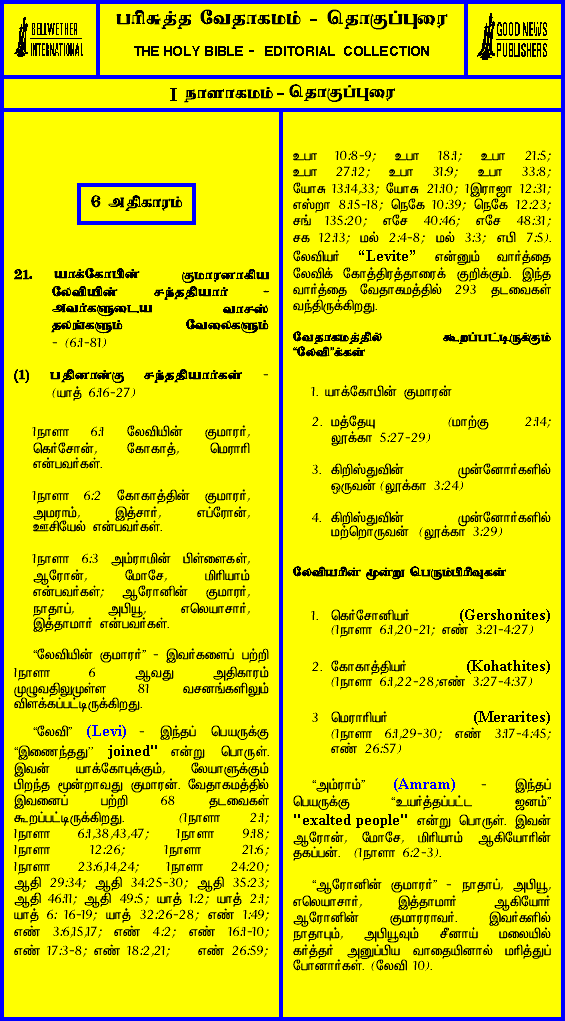 BELLWETHER
INTERNATIONAL
பரிசுத்த வேதாகமம் - தொகுப்புரை
THE HOLY BIBLE - EDITORIAL COLLECTION
GOOD NEWS
PUBLISHERS
I நாளாகமம் - தொகுப்புரை
6 அதிகாரம்
21. யாக்கோபின் குமாரனாகிய
லேவியின் சந்ததியார் -
அவர்களுடைய வாசஸ்
தலங்களும் வேலைகளும்
- (6:1-81)
(1) பதினான்கு சந்ததியார்கள் -
(யாத் 6:16-27)
1நாளா 6:1 லேவியின் குமாரர்,
கெர்சோன், கோகாத், மெராரி
என்பவர்கள்.
1நாளா 6:2 கோகாத்தின் குமாரர்,
அமராம், இத்சார், எப்ரோன்,
ஊசியேல் என்பவர்கள்.
1நாளா 6:3 அம்ராமின் பிள்ளைகள்,
ஆரோன், மோசே, மிரியாம்
என்பவர்கள்; ஆரோனின் குமாரர்,
நாதாப், அபியூ, எலெயாசார்,
இத்தாமார் என்பவர்கள்.
“லேவியின் குமாரர்” - இவர்களைப் பற்றி
1நாளா 6 ஆவது அதிகாரம்
முழுவதிலுமுள்ள 81 வசனங்களிலும்
விளக்கப்பட்டிருக்கிறது.
“லேவி” (Levi) - இந்தப் பெயருக்கு
“இணைந்தது” joined" என்று பொருள்.
இவன் யாக்கோபுக்கும், லேயாளுக்கும்
பிறந்த மூன்றாவது குமாரன். வேதாகமத்தில்
இவனைப் பற்றி 68 தடவைகள்
கூறப்பட்டிருக்கிறது. (1நாளா 2:1;
1நாளா 6:1,38,43,47; 1நாளா 9:18;
1நாளா 12:26; 1நாளா 21:6;
1நாளா 23:6,14,24; 1நாளா 24:20;
ஆதி 29:34; ஆதி 34:25-30; ஆதி 35:23;
ஆதி 46:11; ஆதி 49:5; யாத் 1:2; யாத் 2:1;
யாத் 6: 16-19; யாத் 32:26-28; எண் 1:49;
எண் 3:6,15,17; எண் 4:2; எண் 16:1-10;
எண் 17:3-8; எண் 18:2,21; எண் 26:59;
உபா 10:8-9; உபா 18:1; உபா 21:5;
உபா 27:12; உபா 31:9; உபா 33:8;
யோசு 13:14,33; யோசு 21:10; 1இராஜா 12:31;
எஸ்றா 8:15-18; நெகே 10:39; நெகே 12:23;
சங் 135:20; எசே 40:46; எசே 48:31;
சக 12:13; மல் 2:4-8; மல் 3:3; எபி 7:5).
லேவியர் “Levite” என்னும் வார்த்தை
லேவிக் கோத்திரத்தாரைக் குறிக்கும். இந்த
வார்த்தை வேதாகமத்தில் 293 தடவைகள்
வந்திருக்கிறது.
வேதாகமத்தில் கூறப்பட்டிருக்கும்
“லேவி”க்கள்
1. யாக்கோபின் குமாரன்
2. மத்தேயு (மாற்கு 2:14;
லூக்கா 5:27-29)
3. கிறிஸ்துவின் முன்னோர்களில்
ஒருவன் (லூக்கா 3:24)
4. கிறிஸ்துவின் முன்னோர்களில்
மற்றொருவன் (லூக்கா 3:29)
லேவியரின் மூன்று பெரும்பிரிவுகள்
1. கெர்சோனியர் (Gershonites)
(1நாளா 6:1,20-21; எண் 3:21-4:27)
2. கோகாத்தியர் (Kohathites)
(1நாளா 6:1,22-28;எண் 3:27-4:37)
3 மெராரியர் (Merarites)
(1நாளா 6:1,29-30; எண் 3:17-4:45;
எண் 26:57)
“அம்ராம்” (Amram) - இந்தப்
பெயருக்கு “உயர்த்தப்பட்ட ஜனம்”
"exalted people" என்று பொருள். இவன்
ஆரோன், மோசே, மிரியாம் ஆகியோரின்
தகப்பன். (1நாளா 6:2-3).
“ஆரோனின் குமாரர்” - நாதாப், அபியூ,
எலெயாசார், இத்தாமார் ஆகியோர்
ஆரோனின் குமாரராவர். இவர்களில்
நாதாபும், அபியூவும் சீனாய் மலையில்
கர்த்தர் அனுப்பிய வாதையினால் மரித்துப்
போனார்கள். (லேவி 10).